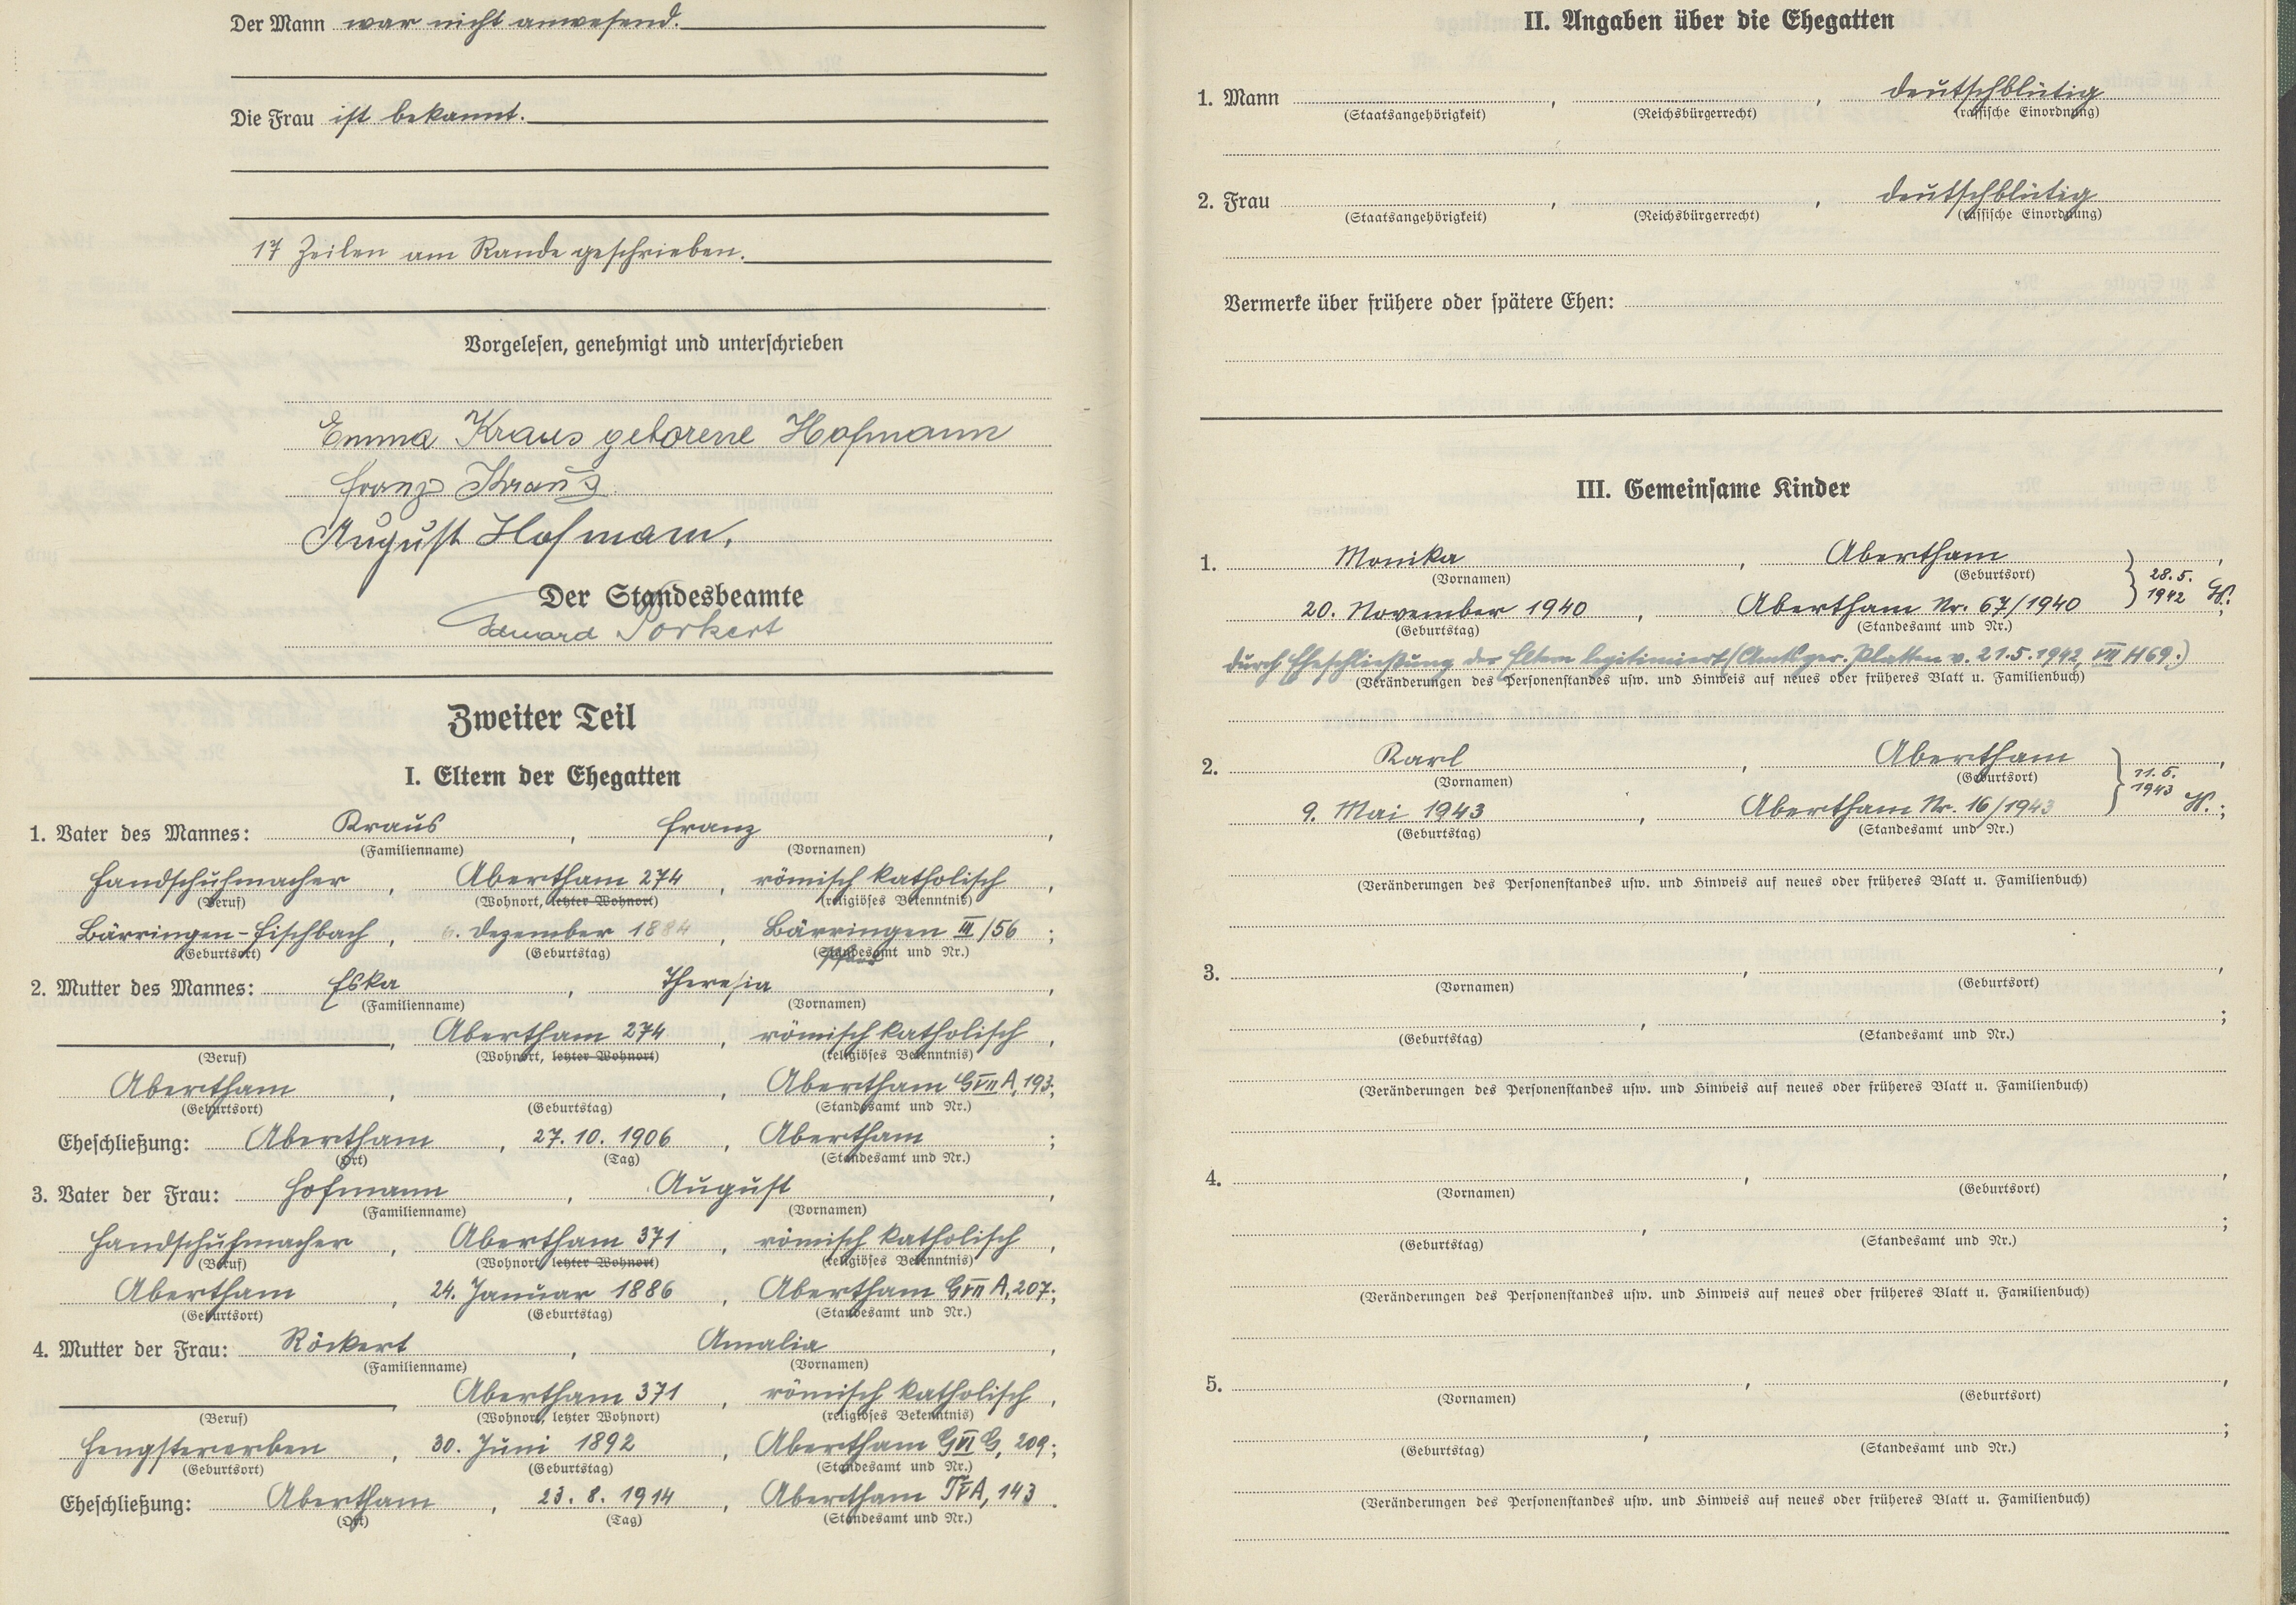 Der Mann war nicht anwesend.
Die Frau ist bekannt.
17 Zeilen am Rande geschrieben.
Vorgelesen, genehmigt und unterschrieben
Emma Kraus geborene Hofmann
Franz Kraus
August Hofmann.
Der Standesbeamte
Eduard Porkert
Zweiter Teil
I. Eltern der Ehegatten
1. Vater des Mannes: Kraus, Franz,
(Familienname) (Vornamen)
Handschuhmacher, Abertham 274, römisch katholisch,
(Beruf) (Wohnort, letzter Wohnort) (religiöses Bekenntnis)
Bärringen-Fischbach, Dezember 1884, Bärringen III/56;
(Geburtsort) (Geburtstag) (Standesamt und Nr.)
2. Mutter des Mannes: Eska, Theresia,
(Familienname) (Vornamen)
, Abertham 274, römisch katholisch,
(Beruf) (Wohnort, letzter Wohnort) (religiöses Bekenntnis)
Abertham, , Abertham G VII A, 193;
(Geburtsort) (Geburtstag) (Standesamt und Nr.)
Eheschließung: Abertham, 27. 10. 1906, Abertham;
(Ort) (Tag) (Standesamt und Nr.)
3. Vater der Frau: Hofmann, August,
(Familienname) (Vornamen)
Handschuhmacher, Abertham 371, römisch katholisch,
(Beruf) (Wohnort, letzter Wohnort) (religiöses Bekenntnis)
Abertham, 24. Januar 1886, Abertham G VII A, 207;
(Geburtsort) (Geburtstag) (Standesamt und Nr.)
4. Mutter der Frau: Röckert, Amalia,
(Familienname) (Vornamen)
, Abertham 371, römisch katholisch,
(Beruf) (Wohnort, letzter Wohnort) (religiöses Bekenntnis)
Hengstererben, 30. Juni 1892, Abertham G VI G, 209;
(Geburtsort) (Geburtstag) (Standesamt und Nr.)
Eheschließung: Abertham, 23. 8. 1914, Abertham T V A, 143.
(Ort) (Tag) (Standesamt und Nr.)
II. Angaben über die Ehegatten
1. Mann , , deutschblütig
(Staatsangehörigkeit) (Reichsbürgerrecht) (rassische Einordnung)
2. Frau , , deutschblütig
(Staatsangehörigkeit) (Reichsbürgerrecht) (rassische Einordnung)
Vermerke über frühere oder spätere Ehen:
III. Gemeinsame Kinder
1. Monika, Abertham,
(Vornamen) (Geburtsort)
28. 5. 1942 H.
20. November 1940, Abertham Nr. 67/1940;
(Geburtstag) (Standesamt und Nr.)
durch Eheschließung der Eltern legitimiert (Amtsger. Platten v. 21.5.1942, VII H 69.)
(Veränderungen des Personenstandes usw. und Hinweis auf neues oder früheres Blatt u. Familienbuch)
2. Karl, Abertham,
(Vornamen) (Geburtsort)
11. 5. 1943 H.
9. Mai 1943, Abertham Nr. 16/1943;
(Geburtstag) (Standesamt und Nr.)
(Veränderungen des Personenstandes usw. und Hinweis auf neues oder früheres Blatt u. Familienbuch)
3. , ,
(Vornamen) (Geburtsort)
, ;
(Geburtstag) (Standesamt und Nr.)
(Veränderungen des Personenstandes usw. und Hinweis auf neues oder früheres Blatt u. Familienbuch)
4. , ,
(Vornamen) (Geburtsort)
, ;
(Geburtstag) (Standesamt und Nr.)
(Veränderungen des Personenstandes usw. und Hinweis auf neues oder früheres Blatt u. Familienbuch)
5. , ,
(Vornamen) (Geburtsort)
, ;
(Geburtstag) (Standesamt und Nr.)
(Veränderungen des Personenstandes usw. und Hinweis auf neues oder früheres Blatt u. Familienbuch)